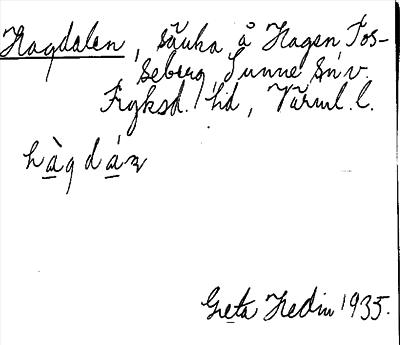 Hagdalen, sänka å Hagen, Fos-
seberg, Sunne sn v.
Fryksd. hd, Värml. l.
hàgdáɳ
Greta Hedin 1935.